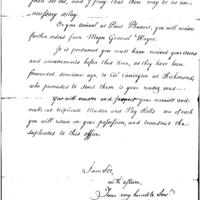 and I pray that there may be no un-
necessary delay.
On your arrival at Point Pleasant, you will receive
further orders from Major General Wayne.
It is presumed you must have received your arms
and accoutrements before this time, as they have been
forwarded sometime ago, to Col Carrington at Richmond,
who promised to send them to your rendezvous.
You will muster and inspect your recruits and
make out triplicate Muster and Pay Rolls one of each
you will retain in your possession, and transmit the
duplicates to this office.
I am Sir,
with esteem,
Your very humble Serv